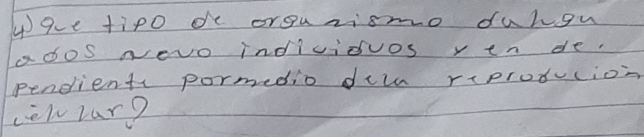 4) que tipo de organismo da lugu
a dos nevo individuos y en de.
pendiente pormedio de la reproducion
celular?